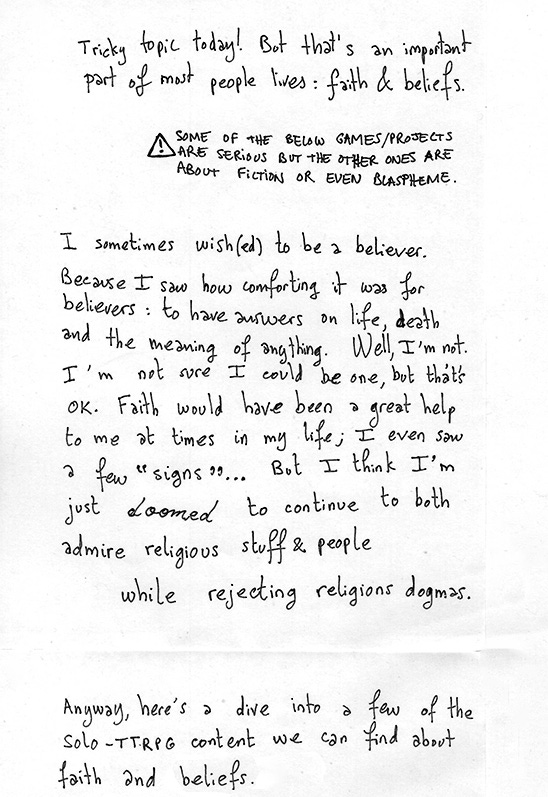 Tricky topic today! But that's an important
part of most people lives: faith & beliefs.
SOME OF THE BELOW GAMES/PROJECTS
ARE SERIOUS BUT THE OTHER ONES ARE
ABOUT FICTION OR EVEN BLASPHEME.
I sometimes wish(ed) to be a believer.
Because I saw how comforting it was for
believers: to have answers on life, death
and the meaning of anything. Well, I'm not.
I'm not sure I could be one, but that's
OK. Faith would have been a great help
to me at times in my life; I even saw
a few "signs"... But I think I'm
just doomed to continue to both
admire religious stuff & people
while rejecting religions dogmas.
Anyway, here's a dive into a few of the
Solo-TTRPG content we can find about
faith and beliefs.